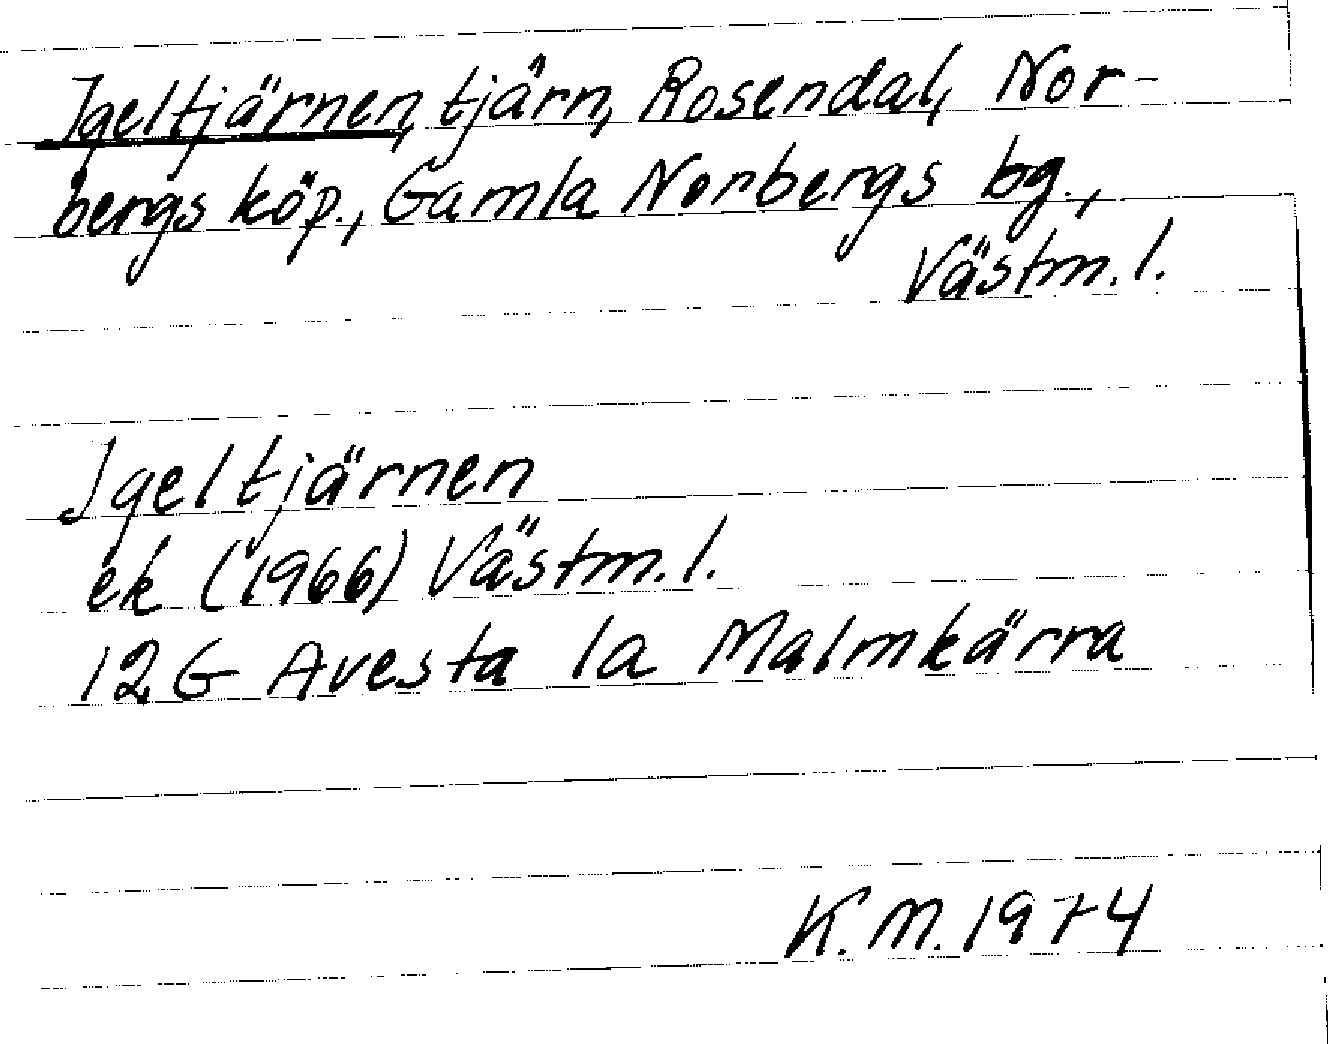 Igeltjärnen, tjärn, Rosendal, Nor-
bergs köp., Gamla Norbergs bg.,
Västm. l.
Igeltjärnen
ek (1966) Västm. l.
12 G Avesta 1a Malmkärra
K. M. 1974